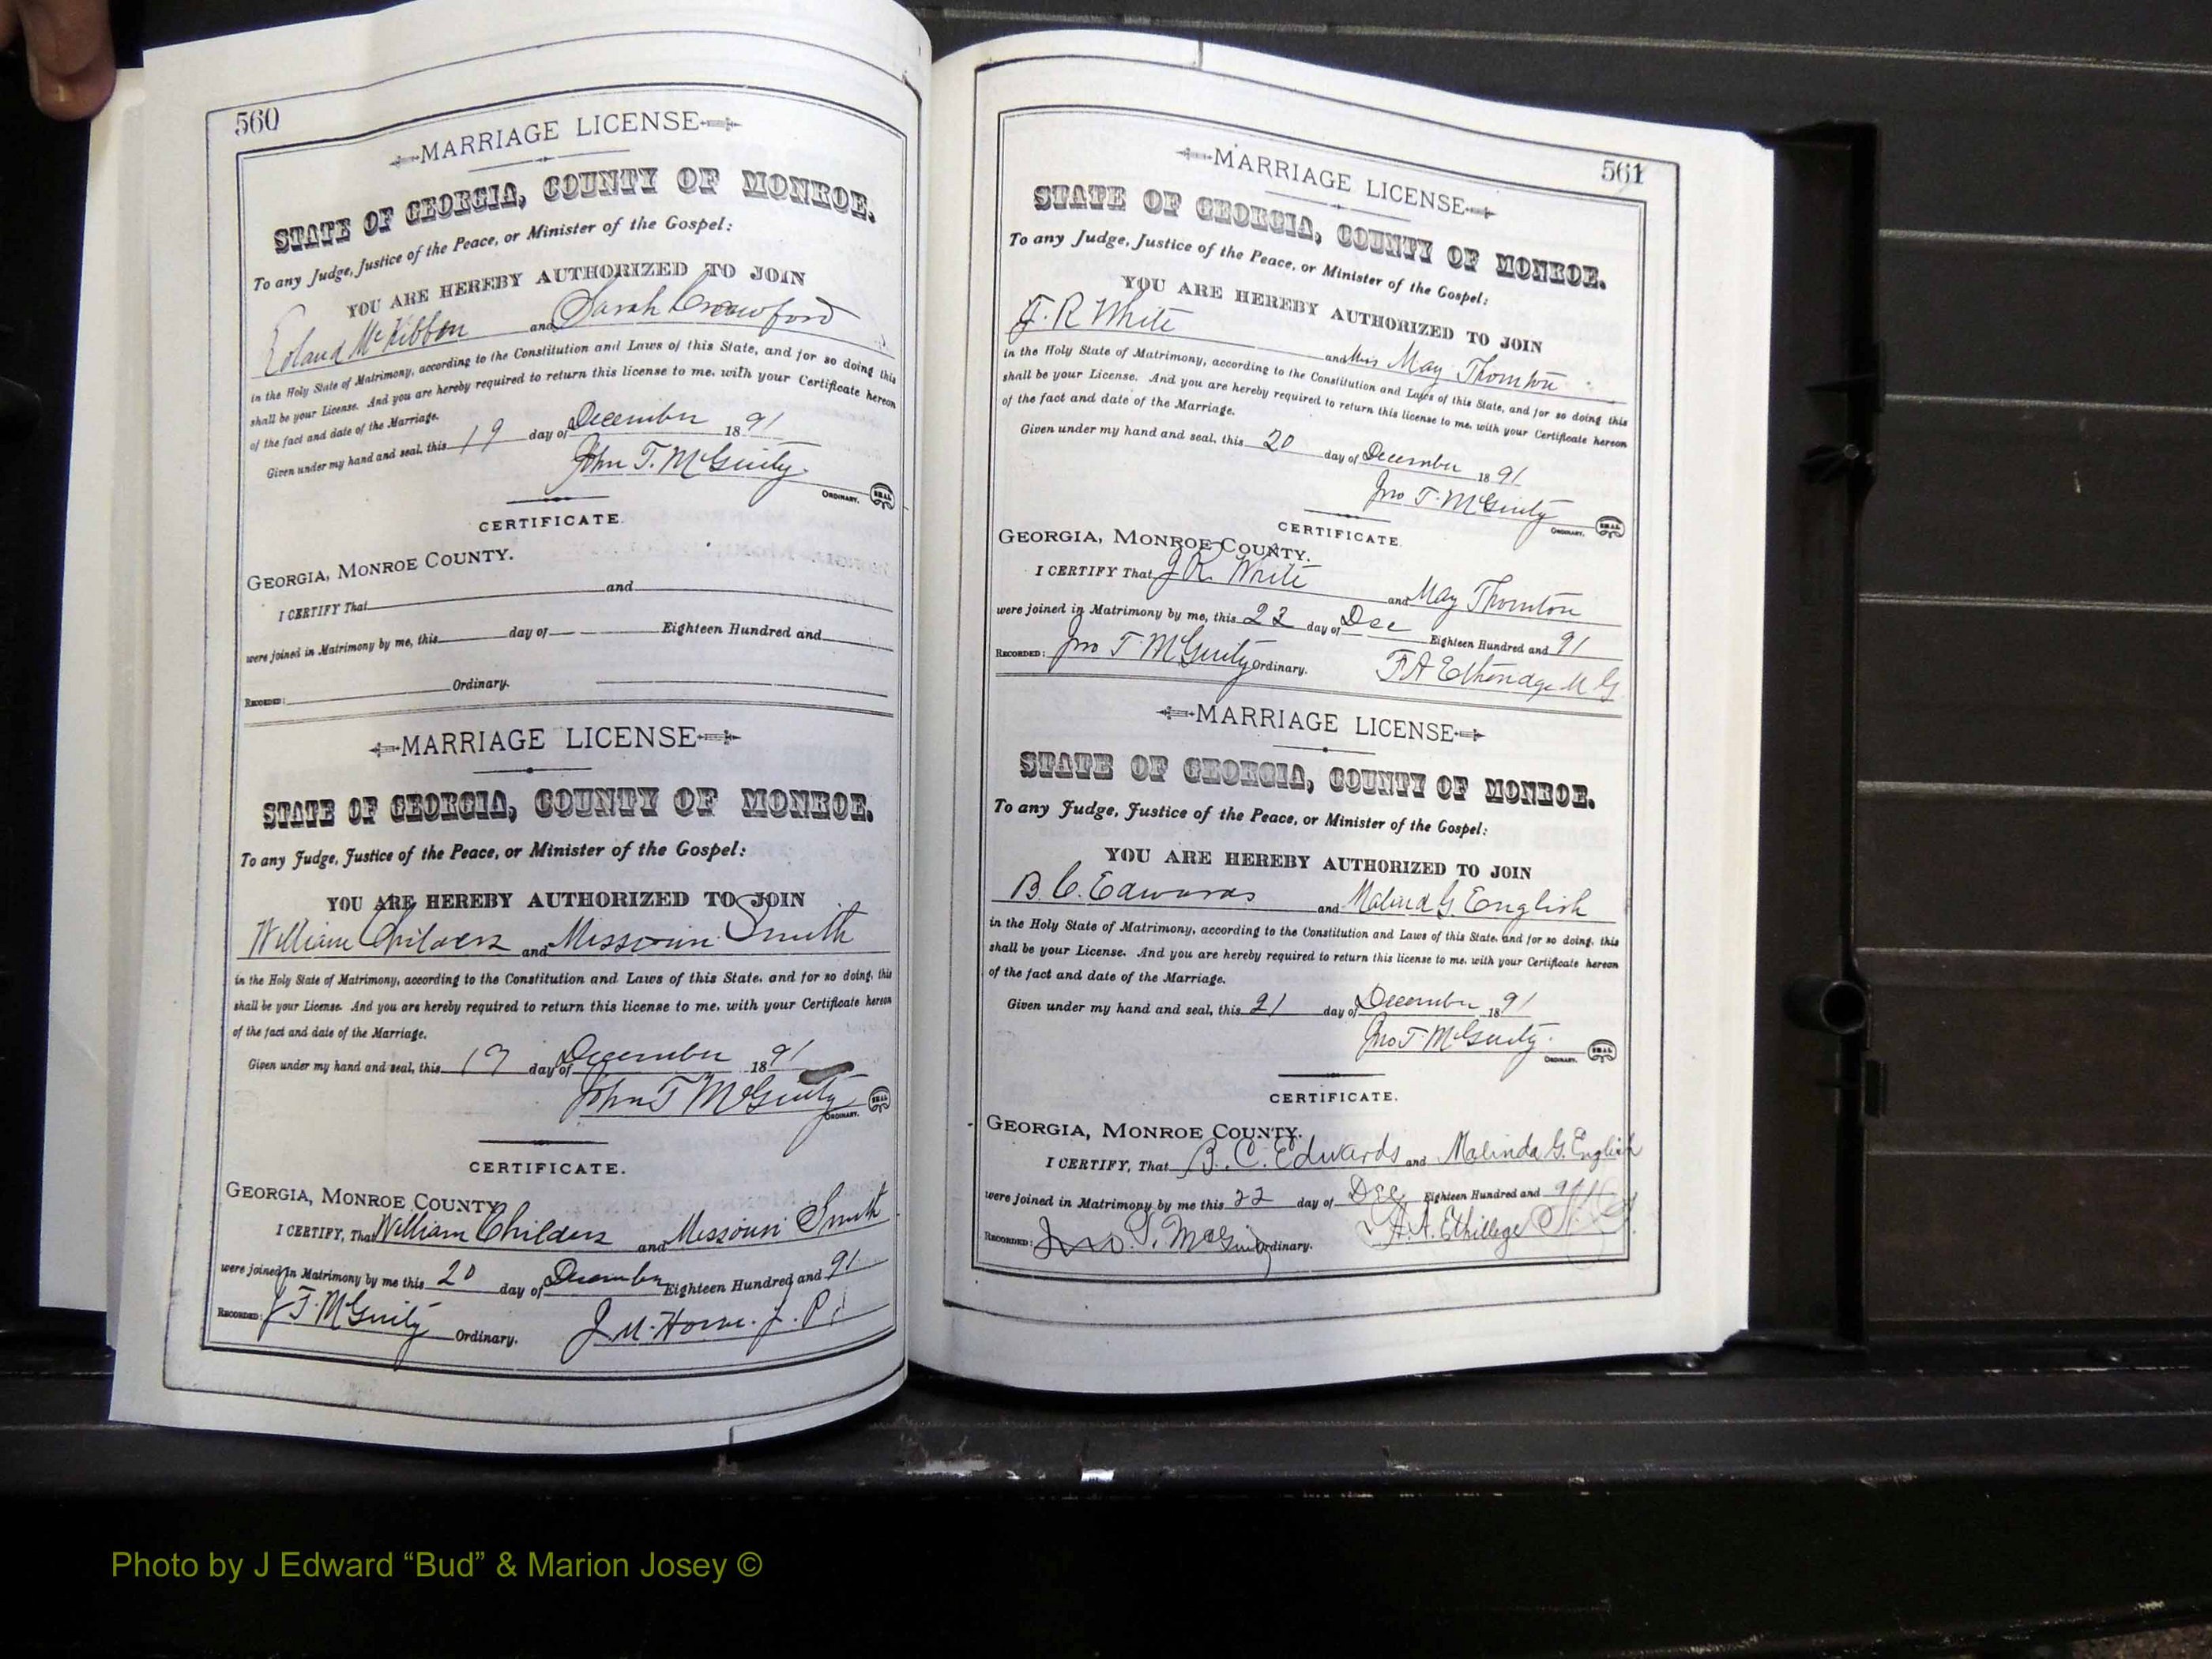 560
MARRIAGE LICENSE
STATE OF GEORGIA, COUNTY OF MONROE.
To any Judge, Justice of the Peace, or Minister of the Gospel:
YOU ARE HEREBY AUTHORIZED TO JOIN
Roland McKibben and Sarah Crawford
in the Holy State of Matrimony, according to the Constitution and Laws of this State, and for so doing this
shall be your License. And you are hereby required to return this license to me, with your Certificate hereon
of the fact and date of the Marriage.
Given under my hand and seal, this 19 day of December 1891
John T. McGinty.
ORDINARY. SEAL
CERTIFICATE.
GEORGIA, MONROE COUNTY.
I CERTIFY That and
were joined in Matrimony by me, this day of Eighteen Hundred and
RECORDED: Ordinary.
MARRIAGE LICENSE
STATE OF GEORGIA, COUNTY OF MONROE.
To any Judge, Justice of the Peace, or Minister of the Gospel:
YOU ARE HEREBY AUTHORIZED TO JOIN
William Childers and Missouri Smith
in the Holy State of Matrimony, according to the Constitution and Laws of this State, and for so doing, this
shall be your License. And you are hereby required to return this license to me, with your Certificate hereon
of the fact and date of the Marriage.
Given under my hand and seal, this day of December 1891
John T McGinty
ORDINARY. SEAL
CERTIFICATE.
GEORGIA, MONROE COUNTY
I CERTIFY, That William Childers and Missouri Smith
were joined in Matrimony by me this 20 day of December Eighteen Hundred and 91
RECORDED: J T. McGinty Ordinary. J. M. Horne. J. P.
561
MARRIAGE LICENSE
STATE OF GEORGIA, COUNTY OF MONROE.
To any Judge, Justice of the Peace, or Minister of the Gospel:
YOU ARE HEREBY AUTHORIZED TO JOIN
J. R White and Miss May Thornton
in the Holy State of Matrimony, according to the Constitution and Laws of this State, and for so doing this
shall be your License. And you are hereby required to return this license to me, with your Certificate hereon
of the fact and date of the Marriage.
Given under my hand and seal, this 20 day of December 1891
Jno T. McGinty
ORDINARY. SEAL
CERTIFICATE.
GEORGIA, MONROE COUNTY.
I CERTIFY That J R. White and May Thornton
were joined in Matrimony by me, this 22 day of Dec Eighteen Hundred and 91
RECORDED: Jno T McGinty Ordinary. F A Etheridge M G
MARRIAGE LICENSE
STATE OF GEORGIA, COUNTY OF MONROE.
To any Judge, Justice of the Peace, or Minister of the Gospel:
YOU ARE HEREBY AUTHORIZED TO JOIN
B. C. Edwards and G. English
in the Holy State of Matrimony, according to the Constitution and Laws of this State, and for so doing, this
shall be your License. And you are hereby required to return this license to me, with your Certificate hereon
of the fact and date of the Marriage.
Given under my hand and seal, this 21 day of December 1891
Jno T. McGinty.
ORDINARY. SEAL
CERTIFICATE.
GEORGIA, MONROE COUNTY.
I CERTIFY, That B. C. Edwards and Malinda G. English
were joined in Matrimony by me this 22 day of Dec Eighteen Hundred and 91
RECORDED: Jno. T. McGinty Ordinary.
Photo by J Edward “Bud” & Marion Josey ©